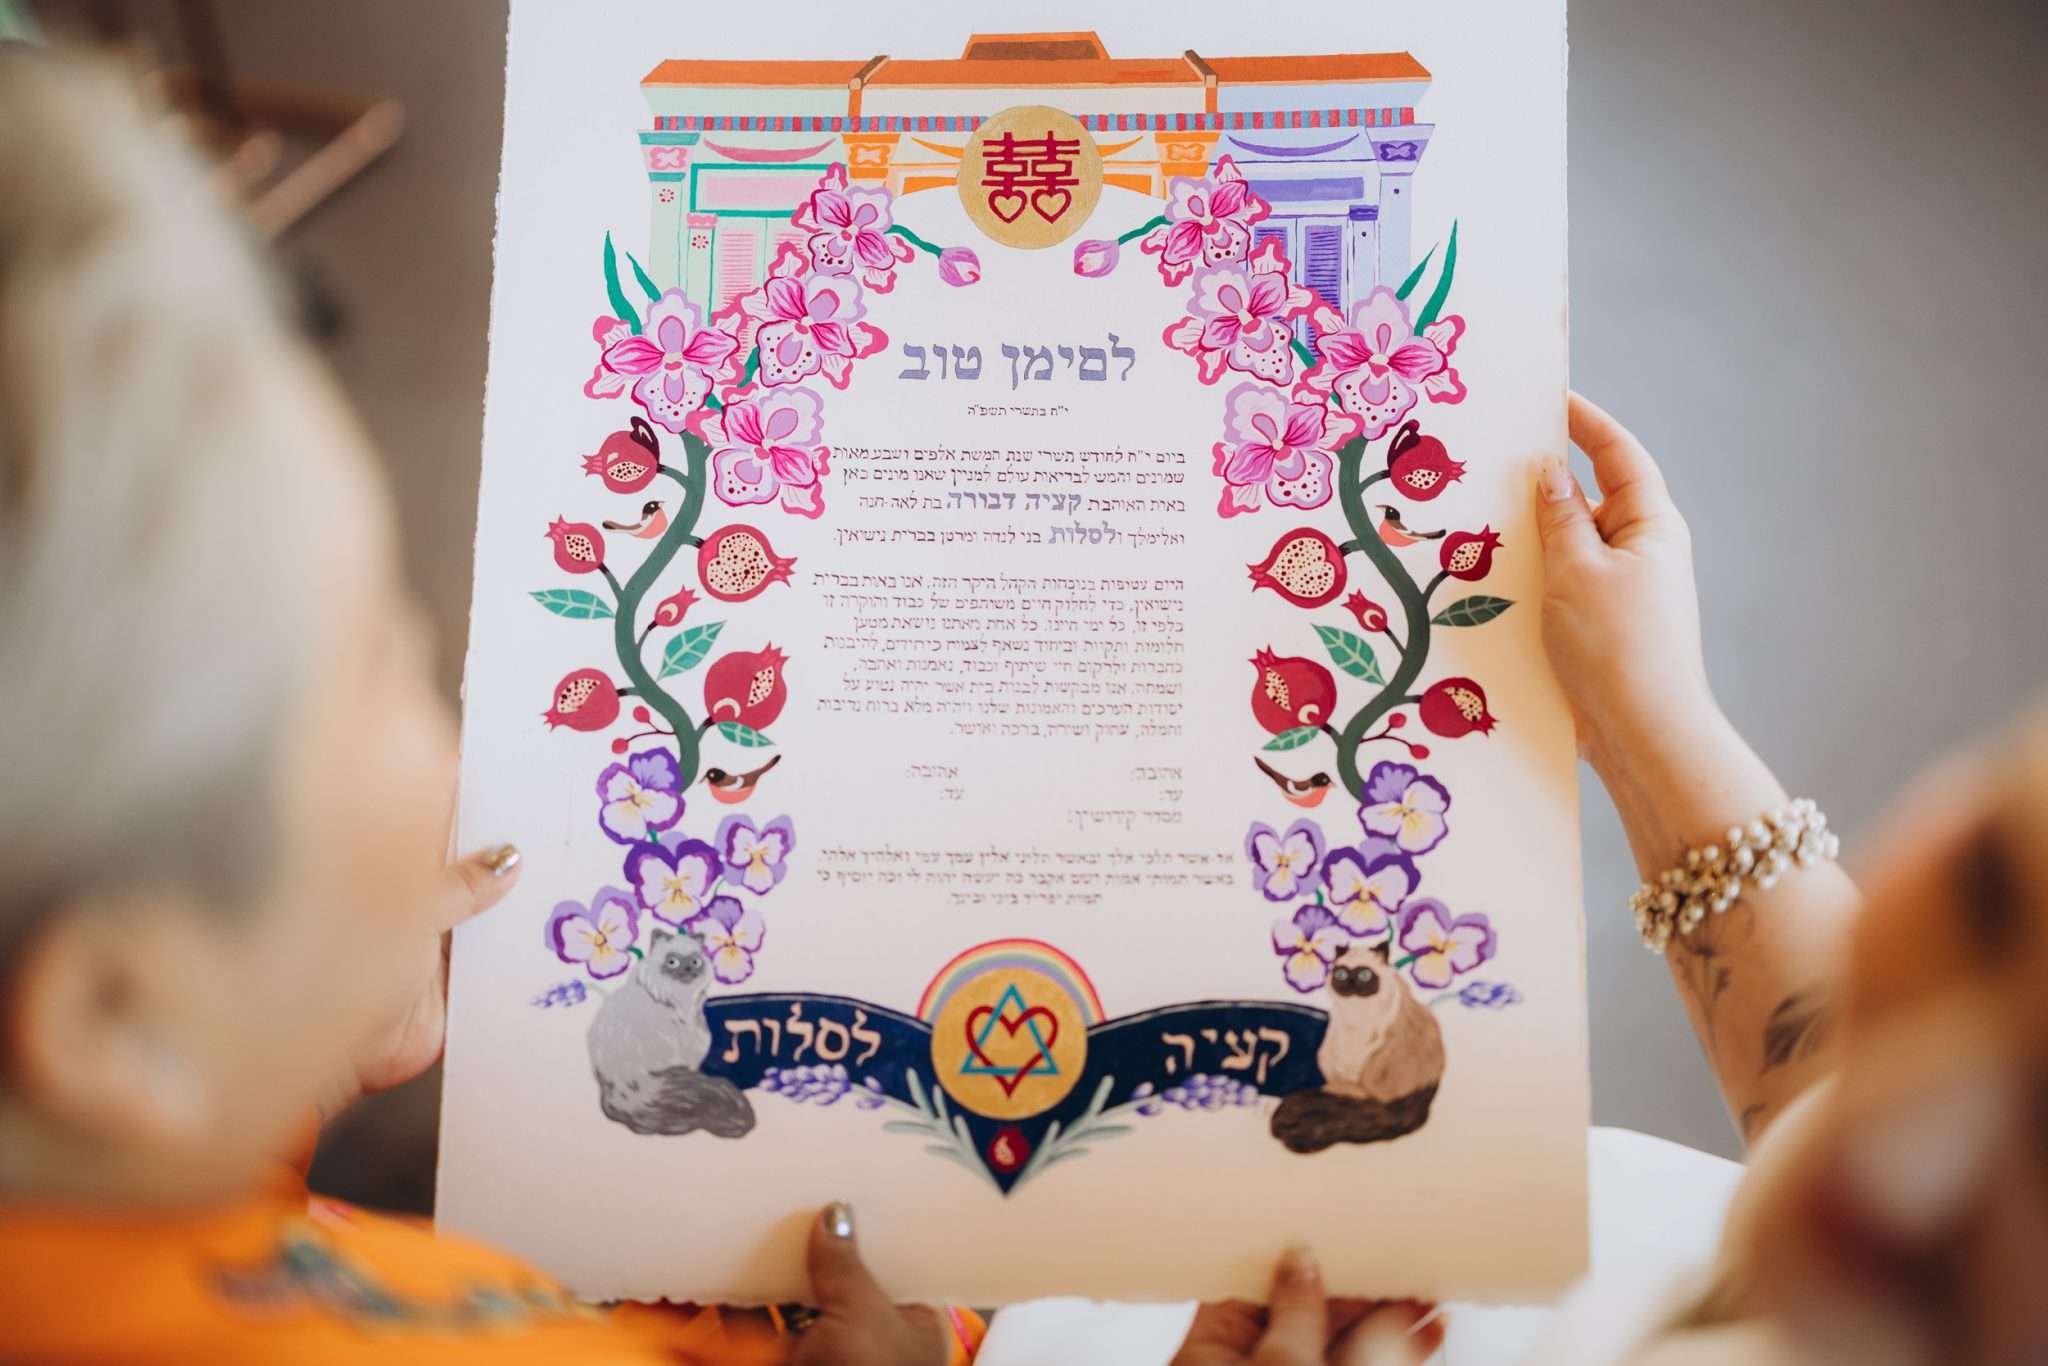 囍
לסימן טוב
י"ח בתשרי תשפ"ה
ביום י"ח לחודש תשרי שנת חמשת אלפים ושבע מאות
שמונים וחמש לבריאות עולם למניין שאנו מונים כאן
באות האוהבת קציה דבורה בת לאה-חנה
ואלימלך ולסלות בני לנדה ומרטן בברית נישואין.
היום עטיפות בנוכחות הקהל היקר הזה, אנו באות בברית
נישואין, כדי לחלוק חיים משותפים של כבוד והוקרה זו
כלפי זו, כל ימי חיינו. כל אחת מאתנו נושאת מטען
חלומות ותקוות וביחוד נשאף לצמוח כיחידים, להיבנות
כחברות ולרקום חיי שיתוף וכבוד, נאמנות ואהבה,
ושמחה. אנו מבקשות לבנות בית אשר יהיה נטוע על
יסודות הערכים והאמונות שלנו ויהיה מלא ברוח נדיבות
וחמלה, צחוק ושירה, ברכה ואושר.
אהובה: אהובה:
עד: עד:
מסדר קידושין:
אל-אשר תלכי אלך ובאשר תליני אלין עמך עמי ואלהיך אלהי.
באשר תמותי אמות ושם אקבר כה יעשה יהוה לי וכה יוסיף כי
המות יפריד ביני ובינך.
קציה לסלות